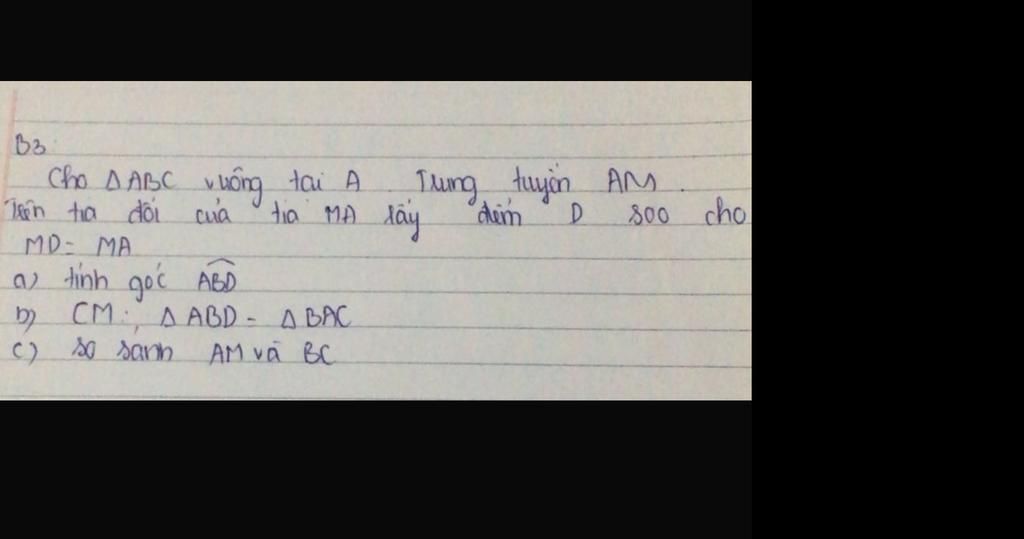 B3:
Cho ΔABC vuông tại A. Trung tuyến AM.
Trên tia đối của tia MA lấy điểm D sao cho
MD = MA
a) tính góc ABD
b) CM: ΔABD = ΔBAC
c) so sánh AM và BC